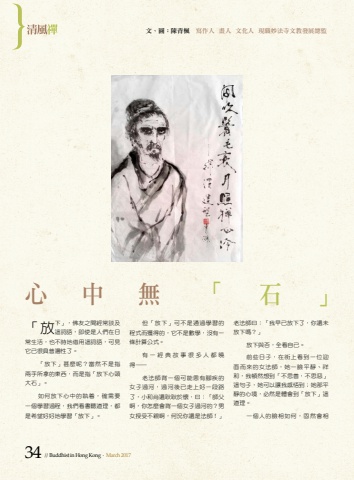 清風禪
文、圖：陳青楓 寫作人 畫人 文化人 現職妙法寺文教發展總監
閒吹鬢毛衰 月照禪心冷
心中無「石」
「放下」，佛友之間經常談及
這詞語，即使是人們在日
常生活，也不時地借用這詞語，可見
它已很具普遍性了。
「放下」甚麼呢？當然不是指
兩手所拿的東西，而是指「放下心頭
大石」。
如何放下心中的執着，確需要
一個學習過程，我們看書聽道理，都
是希望好好地學習「放下」。
但「放下」可不是通過學習的
程式而獲得的，它不是數學，沒有一
條計算公式。
有一經典故事很多人都曉
得──
老法師背一個可能患有腳疾的
女子過河，過河後已走上好一段路
了，小和尚還耿耿於懷，曰：「師父
啊，你怎麼會背一個女子過河的？男
女授受不親啊，何況你還是法師！」
老法師曰：「我早已放下了，你還未
放下嗎？」
放下與否，全看自己。
前些日子，在街上看到一位迎
面而來的女法師，她一臉平靜、祥
和，我頓然想到「不思善，不思惡」
這句子，她可以讓我感悟到：她那平
靜的心境，必然是體會到「放下」這
道理。
一個人的臉相如何，固然會相
34 // Buddhist in Hong Kong · March 2017